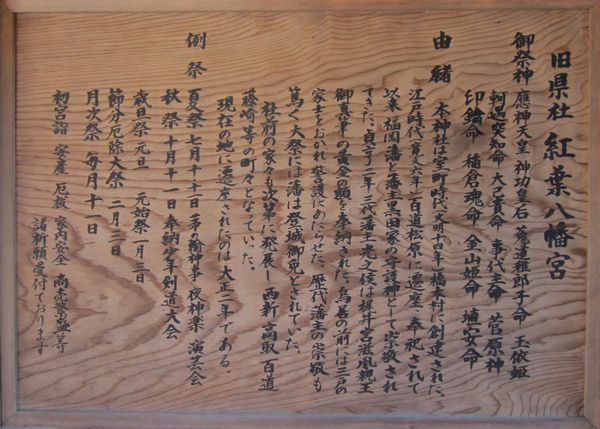 旧県社 紅葉八幡宮
御祭神 應神天皇 神功皇后 菟道稚郎子命 玉依姫
軻遇突知命 大己貴命 事代主命 菅原神
印鑰命 稲倉魂命 金山姫命 埴安命
由緒
本神社は室町時代(文明十四年)橋本村に創建された。
江戸時代(寛文六年)百道松原に遷座、奉祀されて
以来、福岡藩々藩主黒田家の守護神として宗敬され
てきた。貞享二年三代藩主光之候は桃井宮滋風親王
御真筆の黄金の額を奉納された。鳥居の前には三戸の
家士をおかれ警護にあたらせた。歴代藩主の宗敬も
篤く大祭には藩は登城御免とされていた。
社前の家々も次第に発展し西新 高取 百道
藤崎等の町々となっていた。
現在の地に遷座されたのは大正二年である。
例祭
夏祭 七月十一日 茅の輪神事 夜神楽 演芸会
秋祭 十月十一日 奉納少年剣道大会
歳旦祭 元旦 元始祭 一月三日
節分厄除大祭 二月三日
月次祭 毎月十一日
初宮詣 安産 厄祓 家内安全 商売繁盛等
諸祈願受付ております